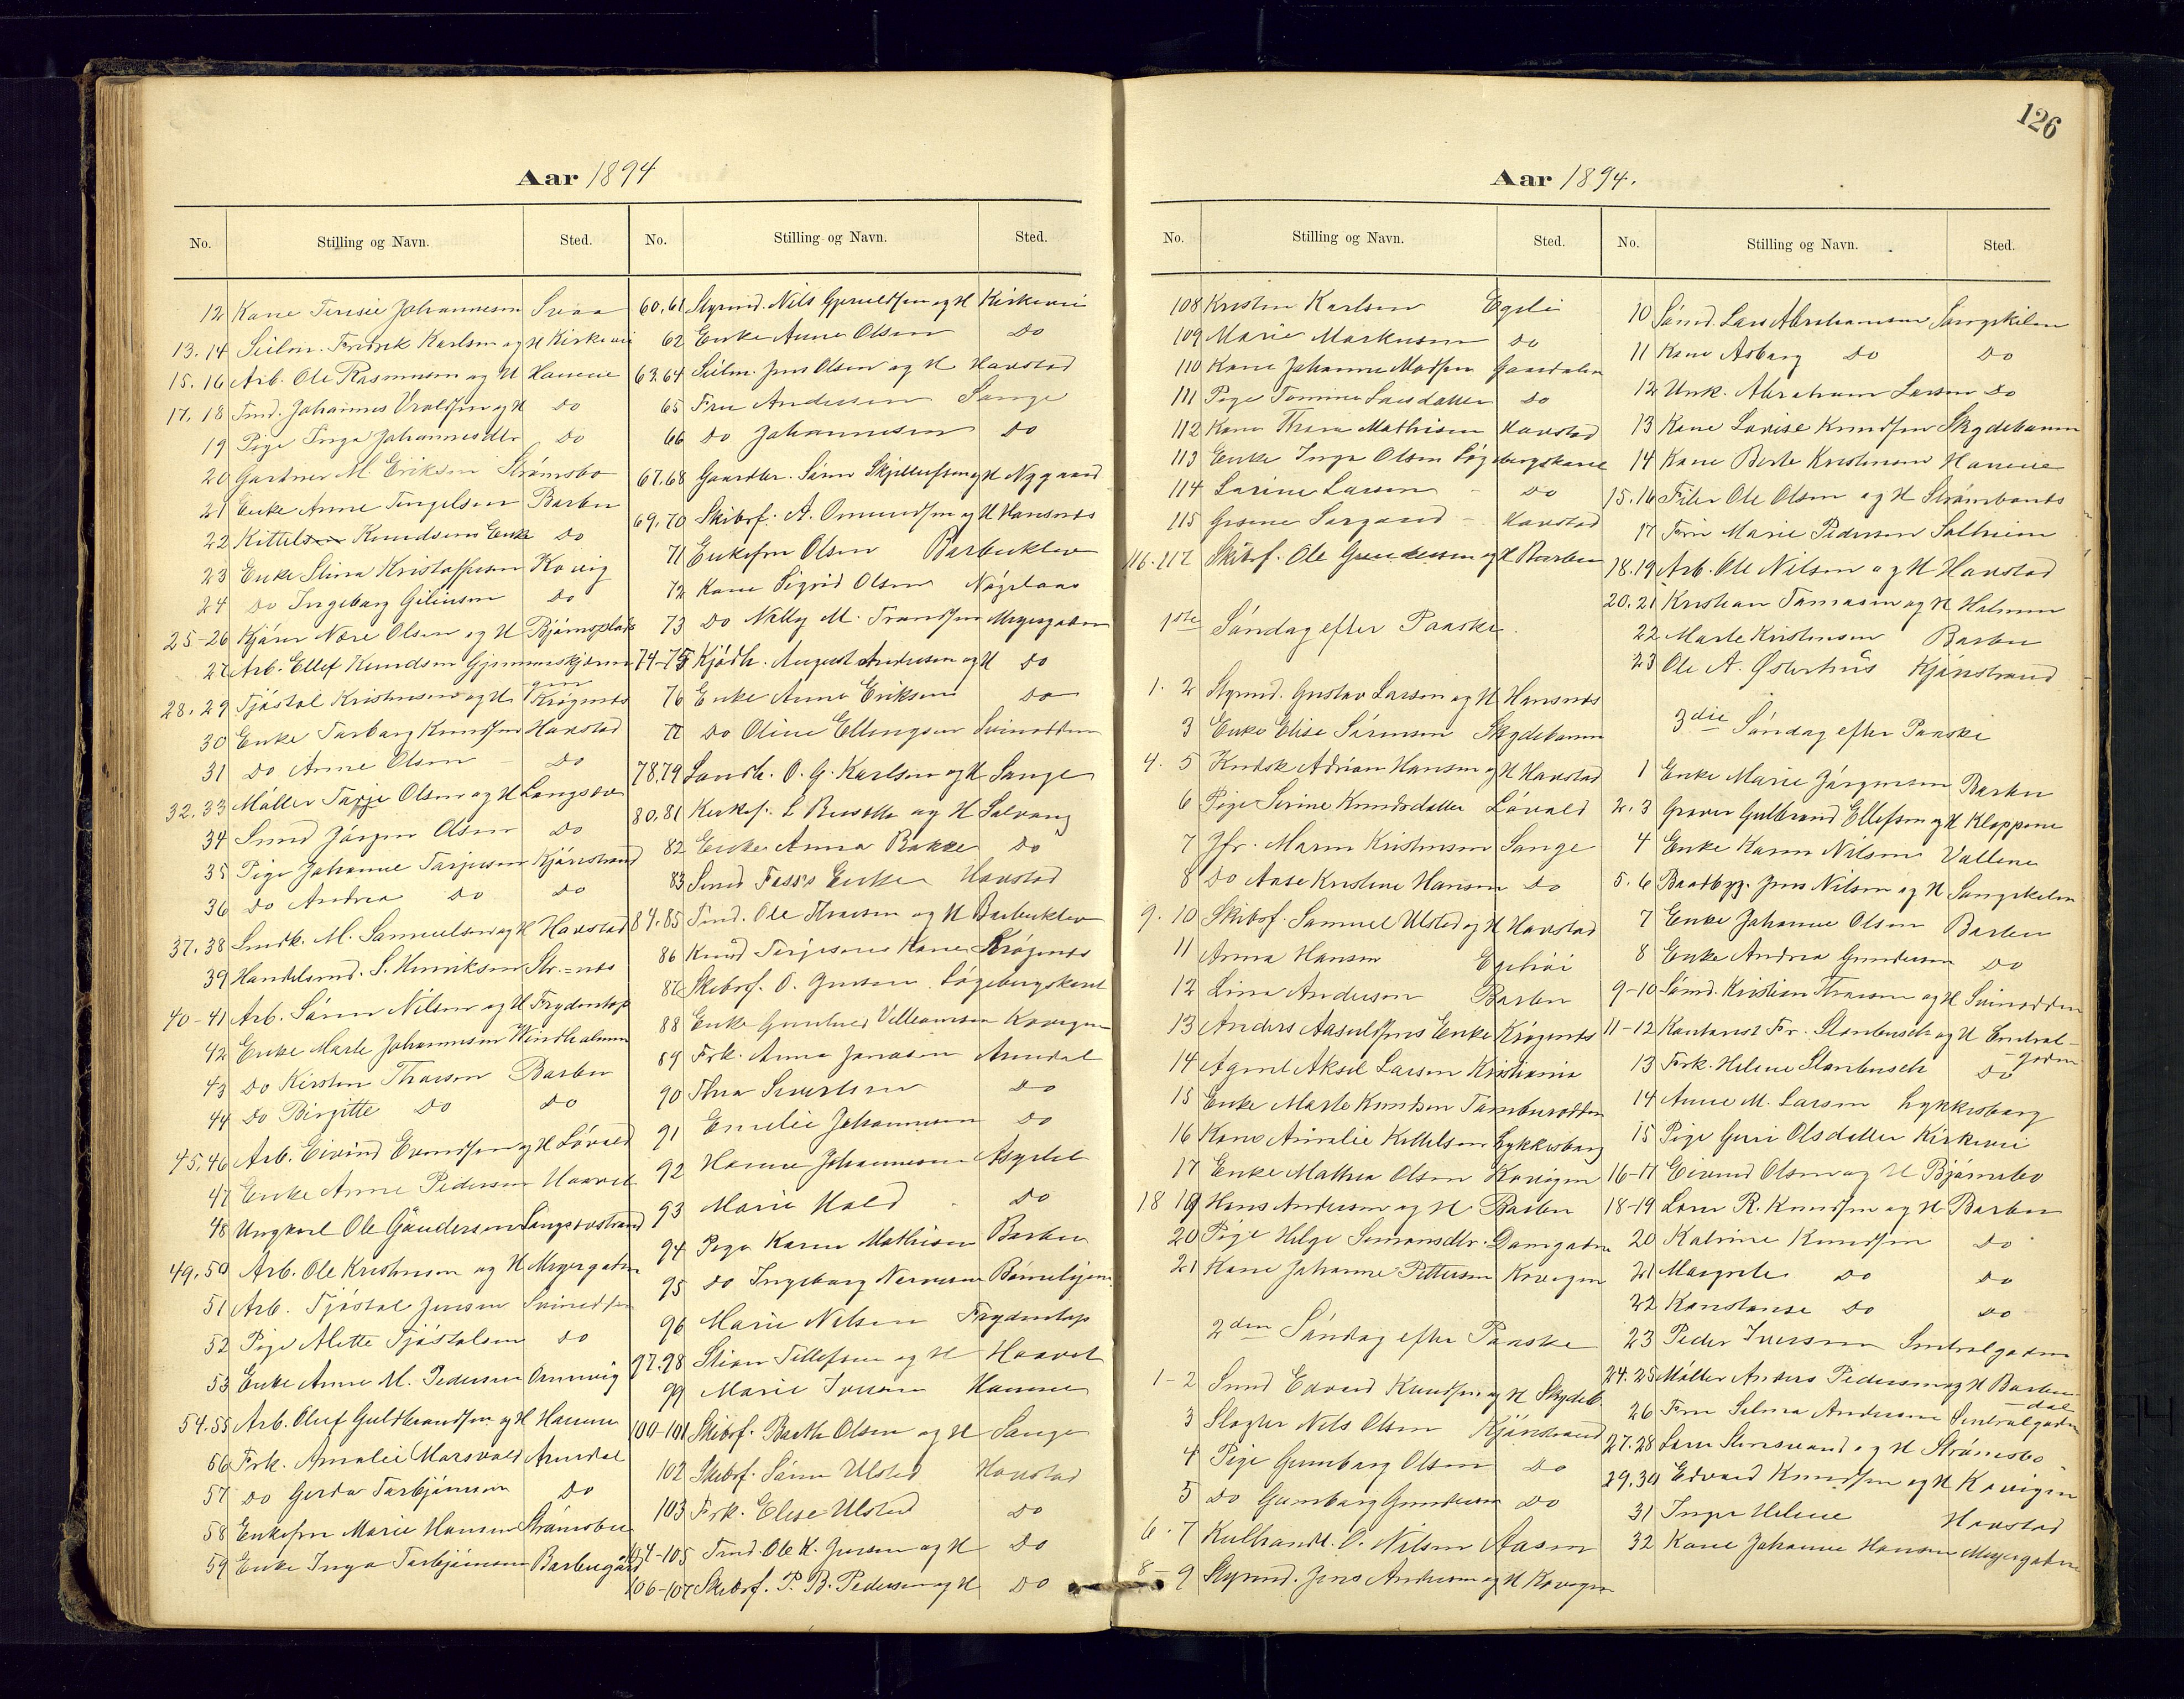 126
Aar 1894
No. Stilling og Navn. Sted. No. Stilling og Navn. Sted.
12 Kone Teresie Johannesen Svaa
13.14 Seilm. Fredrik Karlsen og H Kirkevei
15.16 Arb. Ole Rasmusen og H Hauene
17.18 Tmd. Johannes og H Do
19 Pige Inga Johannesdtr Do
20 Gartner M. Eriksen Strømsbo
21 Enke Anne Tengelsen Barbu
22 Kittelsen Knudsens Enke Do
23 Enke Stina Kristoffersen Kovig
24 Do Ingeborg Do
25-26 Kjører Nere Olsen og H Bjørnsplads
27 Arb. Ellef Knudsen
28.29 Tjøstol Kristensen og H Krøgenes
30 Enke Torborg Knudsen Havstad
31 Do Anne Olsen Do
32.33 Møller Tarje Olsen og H Langsæ
34 Smd Jørgen Olsen Do
35 Pige Johanne Tarjesen Kjønstrand
36 Do Andrea Do Do
37.38 Smdk. M. Samuelsen og H Havstad
39 Handelsmd. S. Henriksen Str.=nes
40-41 Arb. Søren Nilsen og H Frydentop
42 Enke Marte Johannesen Windholmen
43 Do Kirsten Thorsen Barbu
44 Do Birgitte Do Do
45.46 Arb. Eivind Evendsen og H Løvold
47 Enke Anne Pedersen Haavet
48 Ungkarl Ole Gundersen Langsæstrand
49.50 Arb. Ole Kristensen og H Meyergaden
51 Arb. Tjøstol Jensen Svinodden
52 Pige Mette Tjøstolsen Do
53 Enke Anne M. Pedersen Omvvig
54.55 Arb. Oluf Guldbrandsen og H Hauene
56 Frk. Amalie Marsvold Arendal
57 Do Gerda Torbjørnsen Do
58 Enkefru Marie Hansen Strømsbu
59 Enke Inga Torbjørnsen Barbugård
60.61 Styrmd. Nils Gjeruldsen og H Kirkevei
62 Enke Anne Olsen Do
63.64 Seilm. Jens Olsen og H Havstad
65 Fru Andersen Songe
66 Do Johannesen Do
67.68 Gaardbr. Søren Skjellefsen og H Nygaard
69.70 Skibsf. A. Omundsen og H Hansnes
71 Enkefru Olsen Barbuklev
72 Kone Sigrid Olsen Nøgelaas
73 Do Nelly M. Fransen Meyergaden
74-75 Kjødh. August Andersen og H Do
76 Enke Anne Eriksen Do
77 Do Oline Ellingsen Svinodden
78.79 Landh. O. G. Karlsen og H Songe
80.81 Kirkes. L. og H Solvang
82 Enke Anna Bakke Do
83 Smed Foss's Enke Havstad
84.85 Tmd. Ole Thorsen og H Barbuklev
86 Knud Terjesens Kone Krøgenes
87 Skibsf. O. Jensen Løgebergskaret
88 Enke Gunhild Villiamsen Kovigen
89 Frk. Anna Jonasen Arendal
90 Thea Sivertsen Do
91 Emelie Johannesen Do
92 Hanne Johannesen Asylet
93 Marie Hald Do
94 Pige Karen Mathisen Barbu
95 Do Ingeborg
96 Marie Nilsen Frydentop
97.98 Stian Tellefsen og H Haavet
99 Marie Iversen Hauene
100-101 Skibsf. Barth Olsen og H Songe
102 Skibsf. Søren Ulsted Havstad
103 Frk. Elise Ulsted Do
104-105 Tmd. Ole K. Jensen og H Do
106-107 Skibsf. P. B. Pedersen og H Do
Aar 1894.
No. Stilling og Navn. Sted. No. Stilling og Navn. Sted.
108 Kristen Karlsen Egeli
109 Marie Markusen Do
110 Kone Johanne Madsen Gaasdalen
111 Pige Tomine Larsdatter Do
112 Kone Thora Mathisen Havstad
113 Enke Inga Olsen Løgebergskaret
114 Larine Larsen Do
115 Havstad
116.117 Skibsf. Ole Gundersen og H Barbu
1ste Søndag efter Paaske.
1. 2 Styrmd. Gustav Larsen og H Hansnes
3 Enke Elise Sørensen Skydebanen
4. 5 Kudsk Adrian Hansen og H Havstad
6 Pige Serine Knudsdatter Løvold
7 Jfr. Maren Kristensen Songe
8 Do Aase Kristine Hansen Do
9. 10 Skibsf. Samuel Ulsted og H Havstad
11 Anna Hansen
12 Lina Andersen Barbu
13 Anders Aasulfsens Enke Krøgenes
14 Agent Aksel Larsen Kristiania
15 Enke Marte Knudsen Tamburodden
16 Kone Amalie Kittelsen Lykkesborg
17 Enke Mathea Olsen Kovigen
18 19 Hans Andersen og H Barbu
20 Pige Helge Simonsdtr. Damgaden
21 Kone Johanne Pettersen Kovigen
2den Søndag efter Paaske
1-2 Smed Edvard Knudsen og H Skydeb.
3 Slagter Nils Olsen Kjønstrand
4 Pige Gunborg Olsen Do
5 Do Gunborg Gundersen Do
6. 7 Kulbrandt. O. Nilsen Aasen
8-9 Styrmd. Jens Andersen og H Kovigen
10 Sømd. Lars Abrahamsen Songekilen
11 Kone Asborg Do Do
12 Unk. Abraham Larsen Do
13 Kone Lovise Knudsen Skydebanen
14 Kone Berte Kristensen Hauene
15.16 Filer Ole Olsen og H Strømbonts
17 Frøn Marie Pedersen Solheim
18.19 Arb. Ole Nilsen og H Havstad
20.21 Kristian Tomasen og H Holmen
22 Marte Kristensen Barbu
23 Ole A. Østerhus Kjønstrand
3die Søndag efter Paaske
1 Enke Marie Jørgensen Barbu
2. 3 Graver Gulbrand Ellefsen og H Kloppene
4 Enke Karen Nilsen Vollene
5. 6 Baadbygg. Jens Nilsen og H Songekilen
7 Enke Johanne Olsen Barbu
8 Enke Andrea Gundersen Do
9-10 Sømd. Kristian Thorsen og H Svinodden
11-12 Kontorist Fr. Stenbusch og H Central-
gaden
13 Frk. Helene Stenbusch Do
14 Anne M. Larsen Lykkesborg
15 Pige Guri Olsdatter Kirkevei
16-17 Eivind Olsen og H Bjørnebo
18-19 Lars R. Knudsen og H Barbu
20 Katrine Knudsen Do
21 Margrete Do Do
22 Konstanse Do Do
23 Peder Iversen Sentralgaden
24.25 Møller Anders Pedersen og H Barbu-
dal
26 Fru Selma Andersen Sentralgaden
27.28 Lars og H Strømsbo
29.30 Edvard Knudsen og H Kovigen
31 Inger Helene Havstad
32 Kone Johanne Hansen Meyergaden